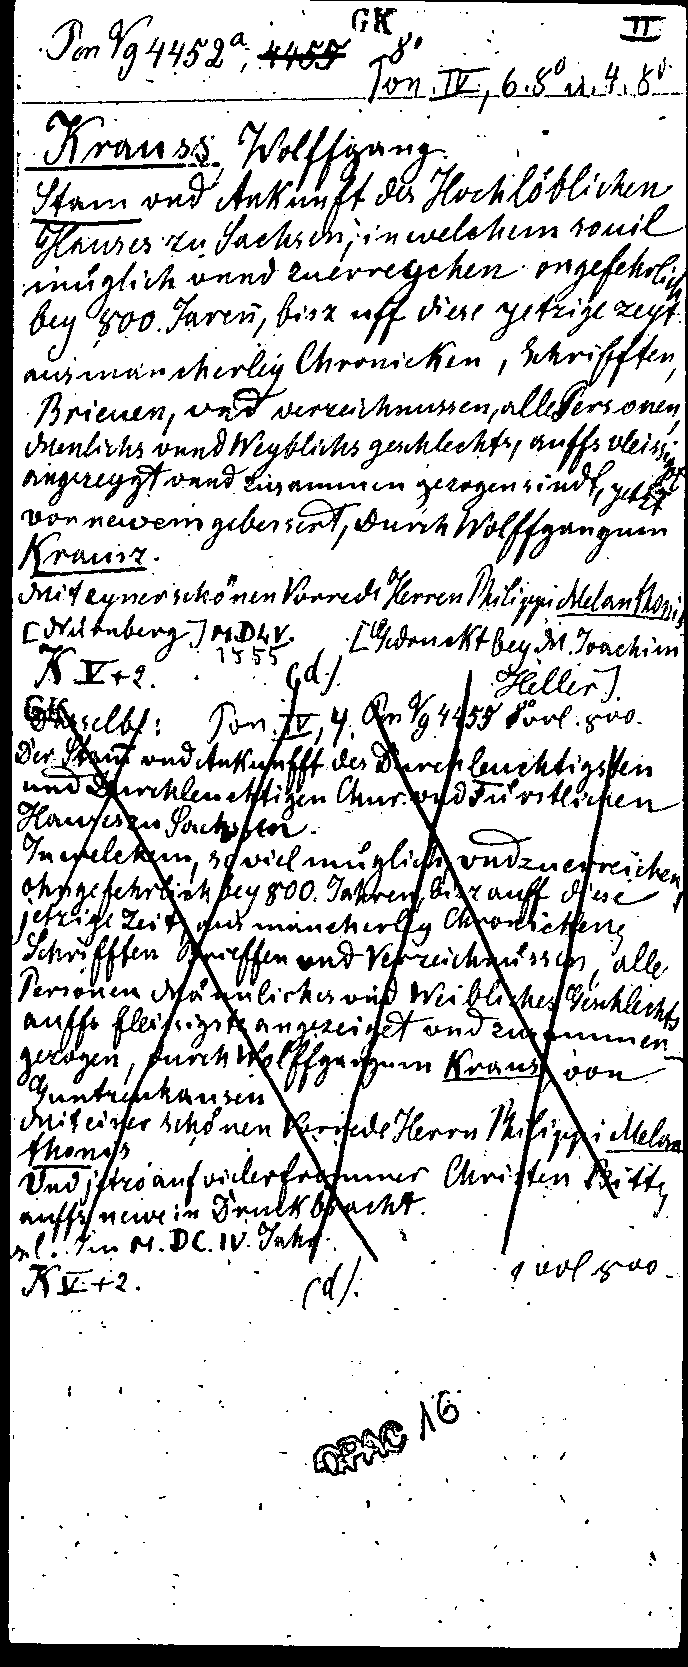 GK
II
Pon Vg 4452ª, 4455 8°
Pon. IV, 6. 8° u. 4. 8°
Krauss, Wolffgang.
Stam vnd Ankunft des Hochlöblichen
Hauses zu Sachsen, in welchem souil
müglich vnnd zuerreychen ongefehrlich
bey 800. Jaren, bisz uff diese yetzige zeyt
aus mancherley Chronicken, Schrifften,
Brieuen, vnd verzeichnussen, alle Personen,
Menlichs vnnd Weyblichs geschlechts, auffs vleissigst
angezeygt vnnd zusammen gezogen sindt, yetzt
von newem gebessert, durch Wolffgangum
Krausz.
Mit eyner schönen Vorrede Herren Philippi Melanthonis
[Nürnberg] M.D.LV. [Gedruckt bey M. Joachim
1555
Heller].
K V+2. (d).
GK
Dasselbe: Pon. IV, 4. Pon Vg 4455 8° vol. 800.
Der Stam vnd Ankunfft des Durchleuchtigsten
und Durchleuchtigen Chur. vnd Fürstlichen
Hauses zu Sachssen.
In welchem, so viel müglich, vnd zuerreichen,
ohngefehrlich bey 800. Jahren, bisz auff diese
jetzige Zeit, aus mancherley Chronicken,
Schrifften Brieffen vnd Verzeichnüssen, alle
Personen Männliches vnd Weibliches Geschlechts
auffs fleissigste angezeiget vnd zusammen
gezogen, durch Wolffgangum Kraus, von
Guntzenhausen
Mit einer schönen Vorrede Herrn Philippi Melan
thonis
Vnd jtzo auf vieler frommer Christen Bitte,
auffs newe in Druck bracht.
s.l. Im M. DC. IV. Jahr.
K V+2. (d). 1 vol 800.
OPAC 16